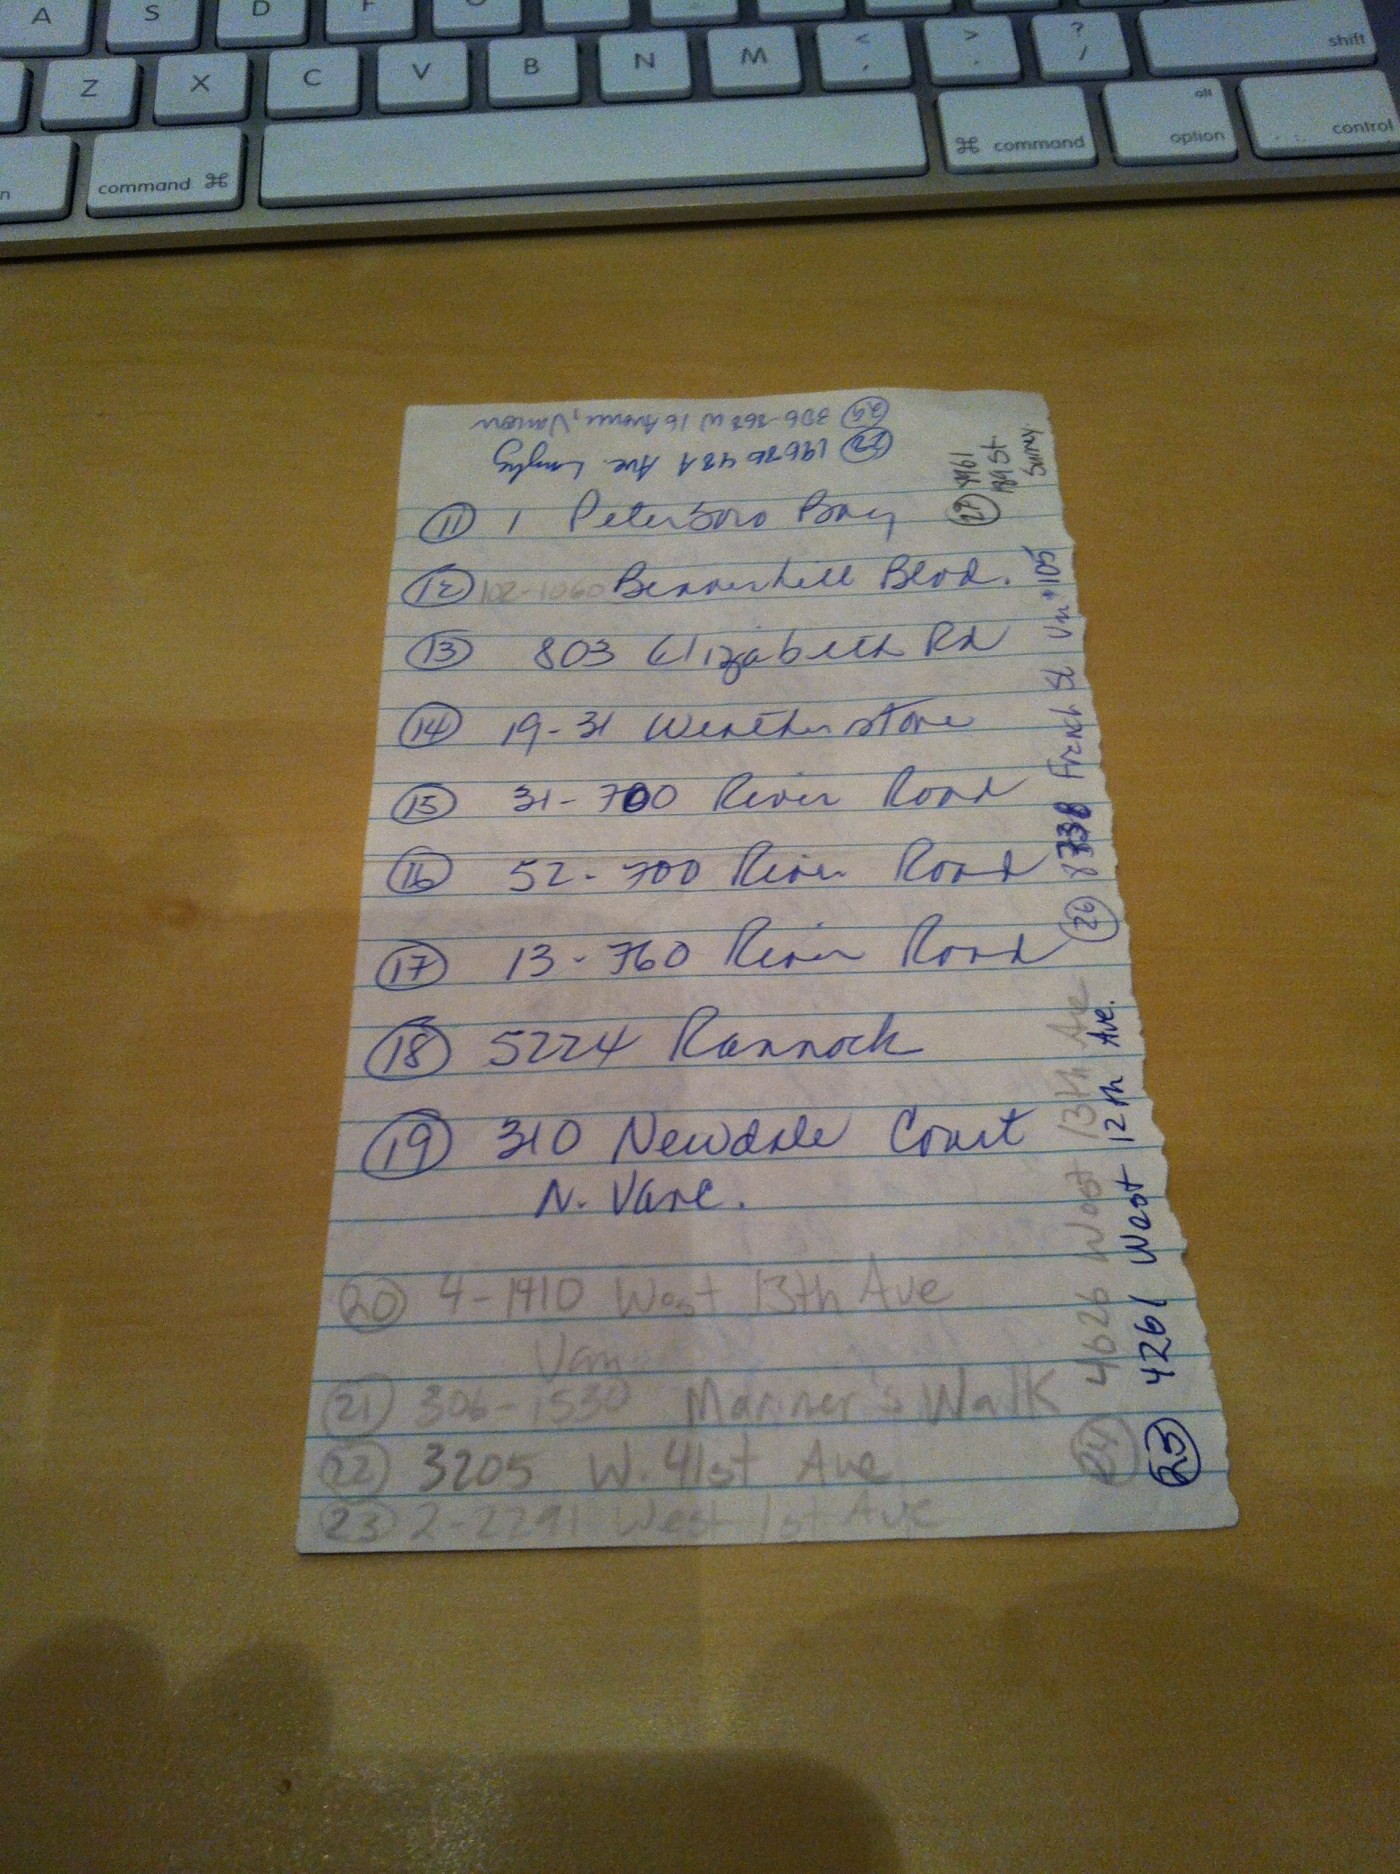 A S D F
Z X C V B N M < , > . ? / shift
command ⌘ ⌘ command alt option control
29 306-368 W 16 Avenue,
28 19676 48A Ave. Langley
27
189 St
Surrey
11 1 Peterboro Bay
12 102-1060 Bennerhill Blvd.
13 803 Elizabeth Rd
14 19-31 Weatherstone
15 31-700 River Road
16 52-700 River Road
17 13-760 River Road
18 5224 Rannock
19 310 Newdale Court
N. Vanc.
20 4-1910 West 13th Ave
Van
21 306-1530 Mariner's Walk
22 3205 W. 41st Ave
23 2-2291 West 1st Ave
24 4626 West 13th Ave
25 4261 West 12th Ave.
26 French St Vn #105